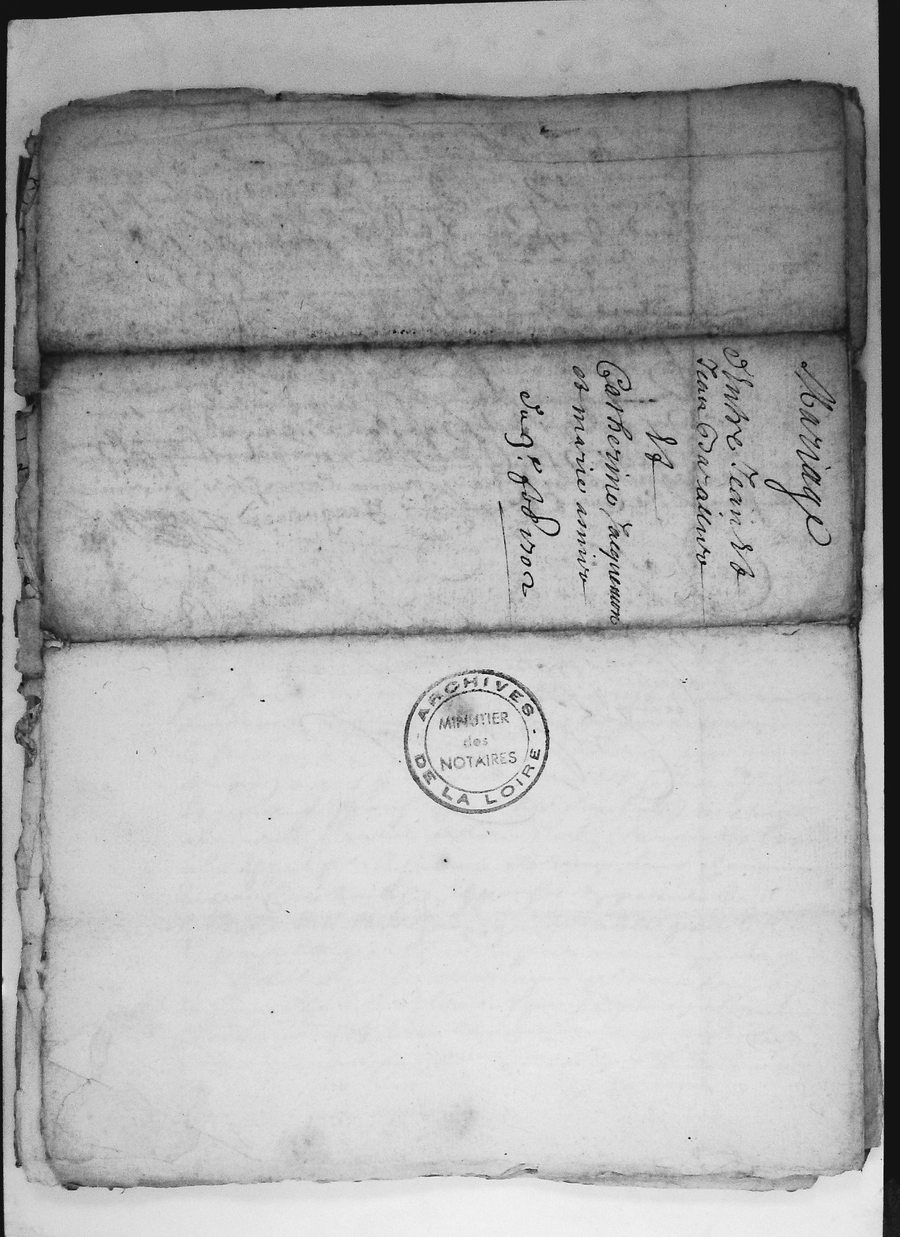 Mariage
d'Entre Jean Et
Jean
Et
Catherine Jaquemon
et marie
du 9e feb 1702
ARCHIVES
DE LA LOIRE
MINUTIER
des
NOTAIRES